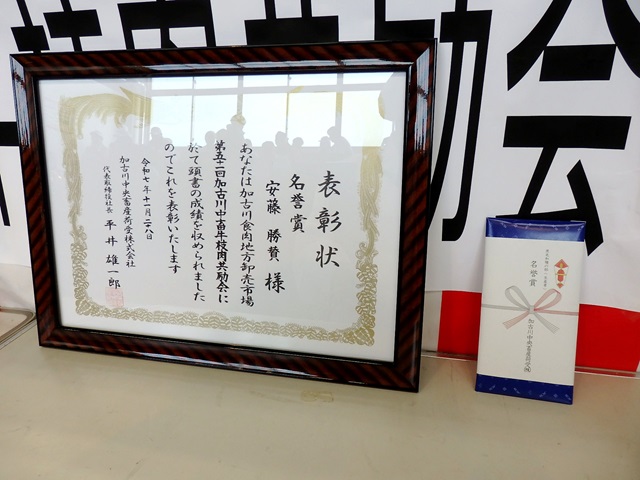 枝肉共励会
表彰状
名誉賞
安藤 勝賛 様
あなたは加古川食肉地方卸売市場
第五十一回加古川中畜牛枝肉共励会に
於て頭書の成績を収められました
のでこれを表彰いたします
令和七年十一月二十八日
加古川中央畜産荷受株式会社
代表取締役社長 平井雄一郎
名誉賞
加古川中央畜産荷受㈱